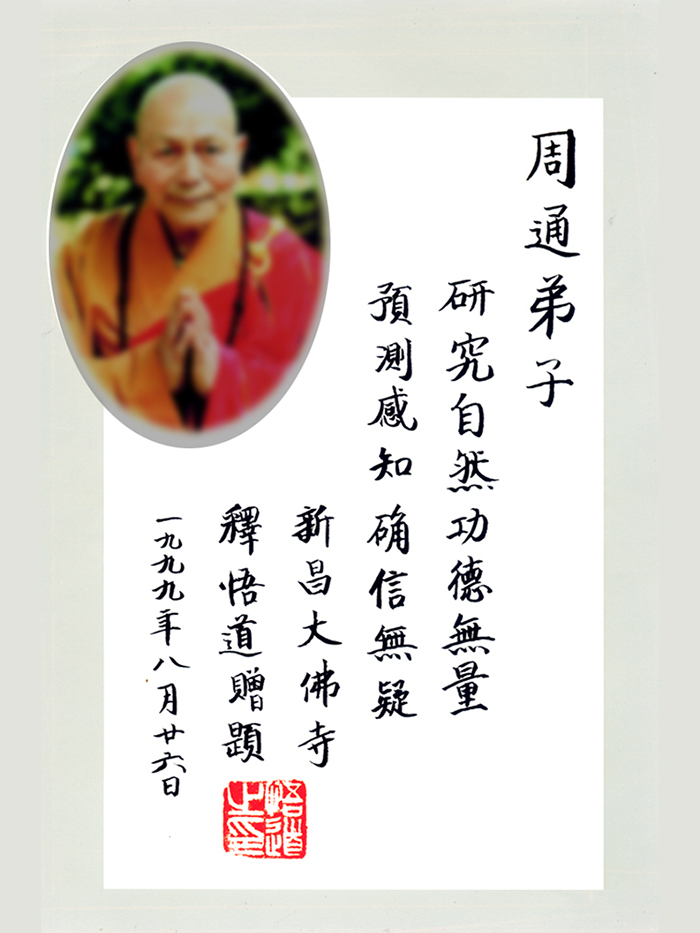 周通弟子
研究自然功德無量
預測感知确信無疑
新昌大佛寺
釋悟道贈題
一九九九年八月廿六日
悟道之印